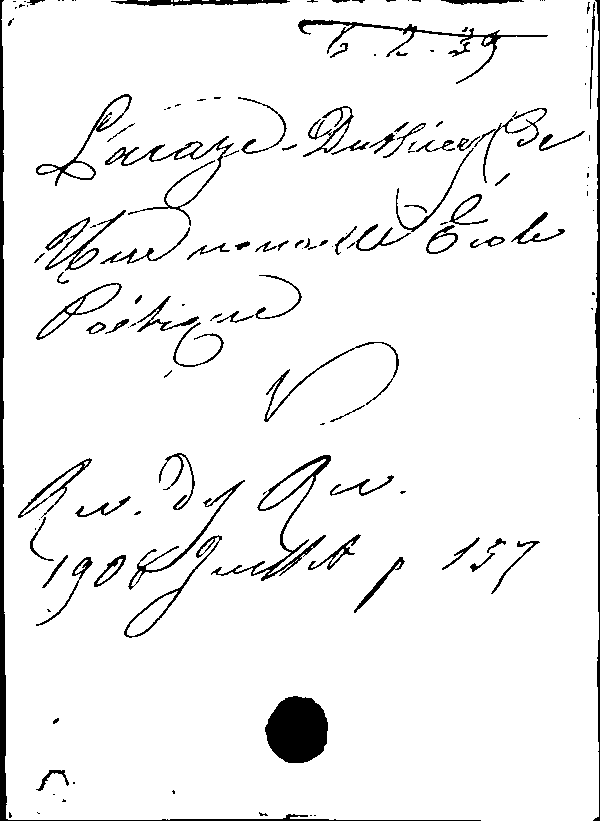 6.2.39
Lacaze-Duthiers (De
Une nouvelle École
Poétique
V
Rev. des Rev.
1908 Juillet p 157